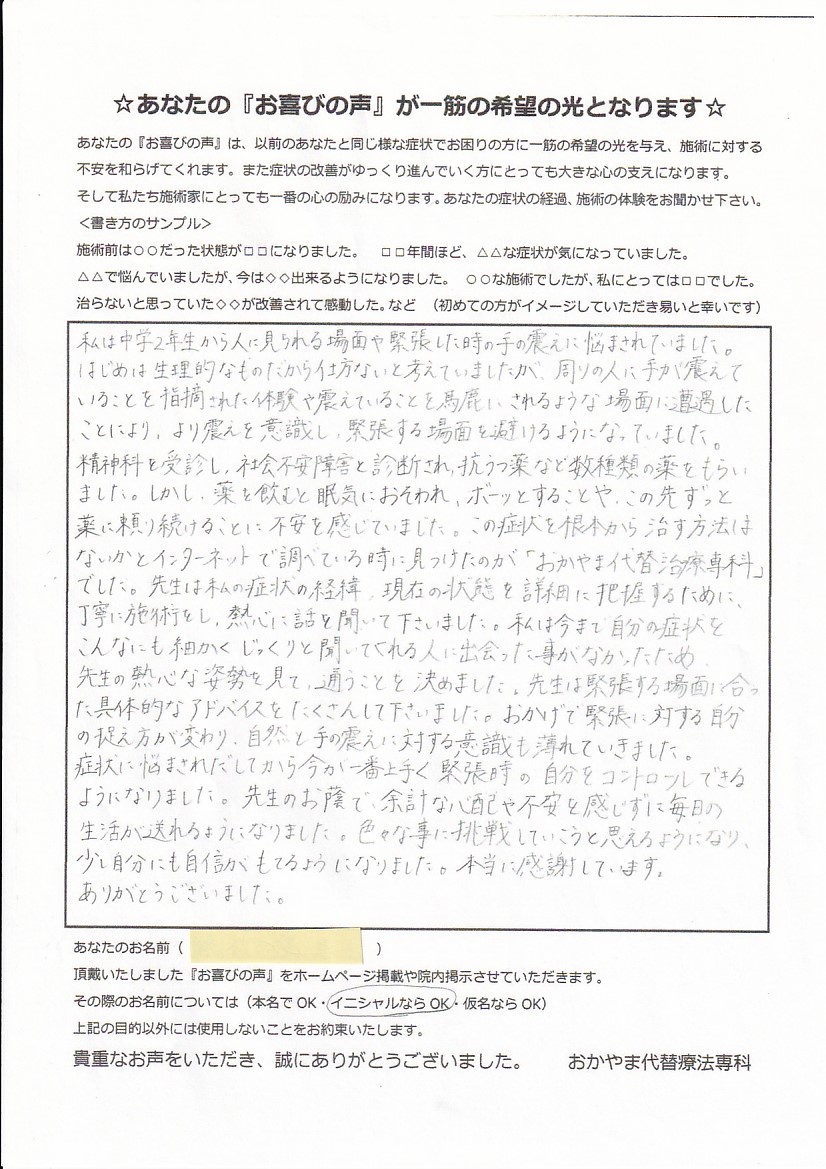 ☆あなたの『お喜びの声』が一筋の希望の光となります☆
あなたの『お喜びの声』は、以前のあなたと同じ様な症状でお困りの方に一筋の希望の光を与え、施術に対する
不安を和らげてくれます。また症状の改善がゆっくり進んでいく方にとっても大きな心の支えになります。
そして私たち施術家にとっても一番の心の励みになります。あなたの症状の経過、施術の体験をお聞かせ下さい。
＜書き方のサンプル＞
施術前は○○だった状態が□□になりました。　□□年間ほど、△△な症状が気になっていました。
△△で悩んでいましたが、今は◇◇出来るようになりました。　○○な施術でしたが、私にとっては□□でした。
治らないと思っていた◇◇が改善されて感動した。など　（初めての方がイメージしていただき易いと幸いです）
私は中学2年生から人に見られる場面や緊張した時の手の震えに悩まされていました。
はじめは生理的なものだから仕方ないと考えていましたが、周りの人に手が震えて
いることを指摘された体験や震えていることを馬鹿にされるような場面に遭遇した
ことにより、より震えを意識し、緊張する場面を避けるようになっていました。
精神科を受診し、社会不安障害と診断され、抗うつ薬など数種類の薬をもらい
ました。しかし、薬を飲むと眠気におそわれ、ボーッとすることや、この先ずっと
薬に頼り続けることに不安を感じていました。この症状を根本から治す方法は
ないかとインターネットで調べている時に見つけたのが「おかやま代替治療専科」
でした。先生は私の症状の経緯、現在の状態を詳細に把握するために、
丁寧に施術をし、熱心に話を聞いて下さいました。私は今まで自分の症状を
こんなにも細かくじっくりと聞いてくれる人に出会った事がなかったため、
先生の熱心な姿勢を見て、通うことを決めました。先生は緊張する場面に合っ
た具体的なアドバイスをたくさんして下さいました。おかげで緊張に対する自分
の捉え方が変わり、自然と手の震えに対する意識も薄れていきました。
症状に悩まされだしてから今が一番上手く緊張時の自分をコントロールできる
ようになりました。先生のお蔭で、余計な心配や不安を感じずに毎日の
生活が送れるようになりました。色々な事に挑戦していこうと思えるようになり、
少し自分にも自信がもてるようになりました。本当に感謝しています。
ありがとうございました。
あなたのお名前（　　　　）
頂戴いたしました『お喜びの声』をホームページ掲載や院内掲示させていただきます。
その際のお名前については（本名でOK・イニシャルならOK・仮名ならOK）
上記の目的以外には使用しないことをお約束いたします。
貴重なお声をいただき、誠にありがとうございました。　　おかやま代替療法専科